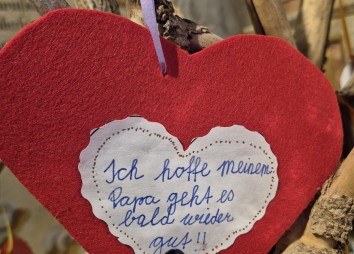 Ich hoffe meinem
Papa geht es
bald wieder
gut !!